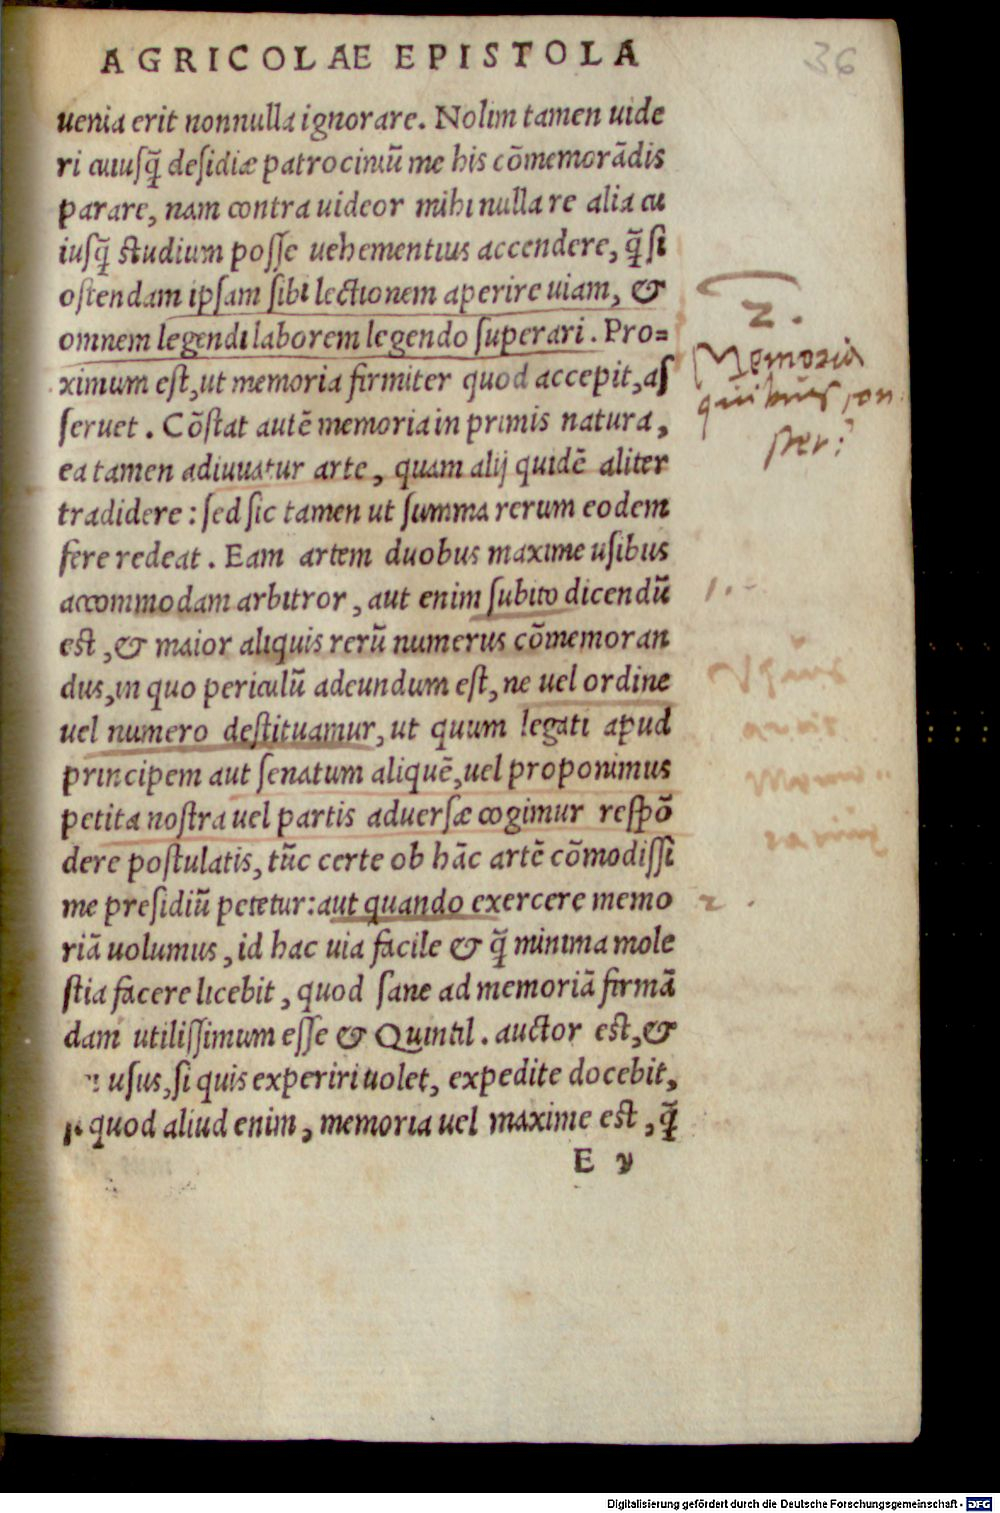 AGRICOLAE EPISTOLA
36
uenia erit nonnulla ignorare. Nolim tamen uide
ri cuiusq̃ desidiæ patrociniũ me his cõmemorãdis
parare, nam contra uideor mihi nulla re alia cu
iusq̃ studium posse uehementius accendere, q̃ si
ostendam ipsam sibi lectionem aperire uiam, &
omnem legendi laborem legendo superari. Pro=
ximum est, ut memoria firmiter quod accepit, as
seruet. Cõstat autẽ memoria in primis natura,
ea tamen adiuuatur arte, quam alij quidẽ aliter
tradidere: sed sic tamen ut summa rerum eodem
fere redeat. Eam artem duobus maxime usibus
accommodam arbitror, aut enim subito dicendũ
est, & maior aliquis rerũ numerus cõmemoran
dus, in quo periculũ adeundum est, ne uel ordine
uel numero destituamur, ut quum legati apud
principem aut senatum aliquẽ, uel proponimus
petita nostra uel partis aduersæ cogimur respõ
dere postulatis, tũc certe ob hãc artẽ cõmodissi
me presidiũ petetur: aut quando exercere memo
riã uolumus, id hac uia facile & q̃ minima mole
stia facere licebit, quod sane ad memoriã firmã
dam utilissimum esse & Quintil. auctor est, &
usus, si quis experiri uolet, expedite docebit,
quod aliud enim, memoria uel maxime est, q̃
E y
2.
Memoria
quibus con
1.
2.
Digitalisierung gefördert durch die Deutsche Forschungsgemeinschaft - DFG